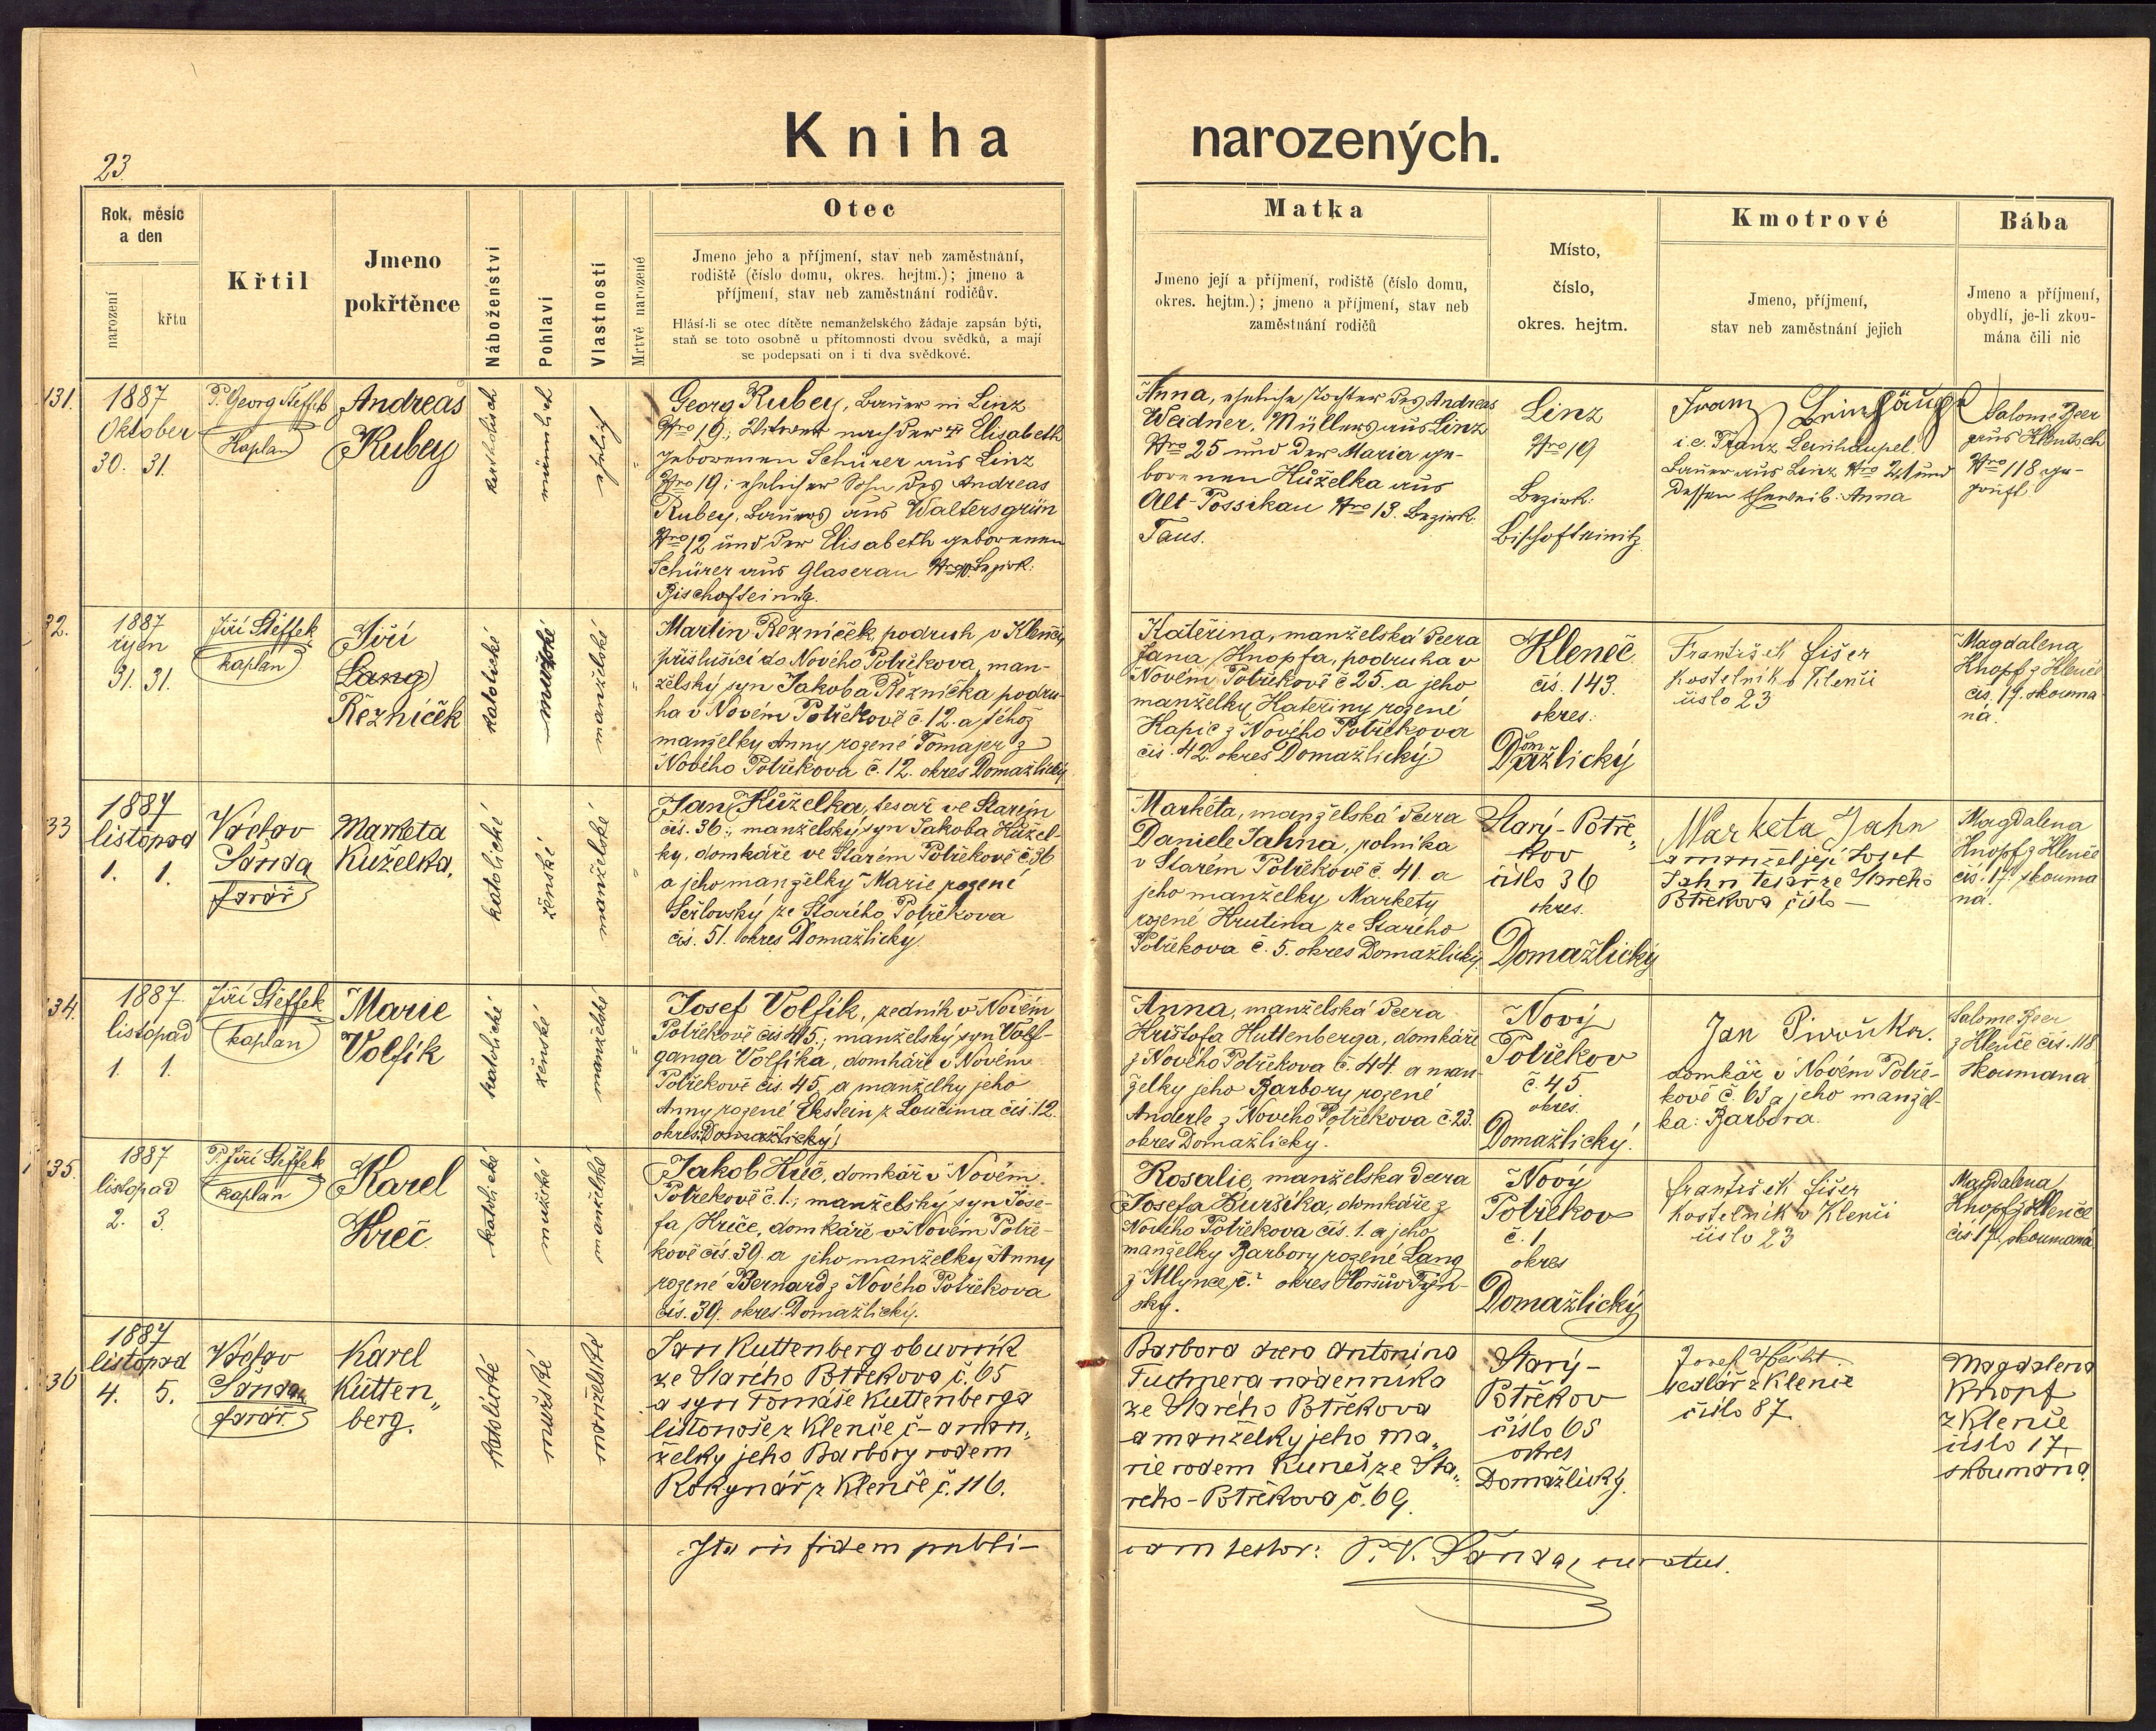 Kniha narozených.
23.
Rok, měsíc a den
narození
křtu
Křtil
Jmeno pokřtěnce
Náboženství
Pohlaví
Vlastnosti
Mrtvě narozené
Otec
Jmeno jeho a příjmení, stav neb zaměstnání,
rodiště (číslo domu, okres. hejtm.); jmeno a
příjmení, stav neb zaměstnání rodičův.
Hlásí-li se otec dítěte nemanželského žádaje zapsán býti,
staň se toto osobně u přítomnosti dvou svědků, a mají
se podepsati on i ti dva svědkové.
Matka
Jmeno její a příjmení, rodiště (číslo domu,
okres. hejtm.); jmeno a příjmení, stav neb
zaměstnání rodičů
Místo,
číslo,
okres. hejtm.
Kmotrové
Jmeno, příjmení,
stav neb zaměstnání jejich
Bába
Jmeno a příjmení,
obydlí, je-li zkou-
mána čili nic
131.
1887
Oktober
30. 31.
P. Georg Steffek
Kaplan
Andreas
Rubey
katholisch
männlich
ehelich
Georg Rubey, Bauer in Linz
Nro 19; Witwer nach der Elisabeth
geborenen Schürer aus Linz
Nro 19; ehelicher Sohn des Andreas
Rubey, Bauers aus Waltersgrün
Nro 12 und der Elisabeth geborenen
Schürer aus Glaserau Bezirk:
Bischofteinitz.
Anna, eheliche Tochter des Andreas
Weidner, Müllers aus Linz
Nro 25 und der Maria ge-
borenen Kůželka aus
Alt-Possikau Nro 13. Bezirk:
Taus.
Linz
Nro 19
Bezirk:
Bischofteinitz
Franz Leinhäupl
i.e. Franz Leinhaupel,
Bauer aus Linz Nro 21 und
dessen Eheweib: Anna
Salome Beer
aus Klentsch
Nro 118 ge-
prüft.
32.
1887
říjen
31. 31.
Jiří Šteffek
kaplan
Jiří
Lang
Řezníček
katolické
mužské
manželské
Martin Řezníček, podruh v Klenčí,
příslušící do Nového Potřekova, man-
želský syn Jakoba Řezníčka podru-
ha v Novém Potřekově č. 12. a téhož
manželky Anny rozené Tomajer z
Nového Potřekova č. 12. okres Domažlický
Kateřina, manželská dcera
Jana Knopfa, podruha v
Novém Potřekově č 25. a jeho
manželky Kateřiny rozené
Kapic z Nového Potřekova
čís. 42. okres Domažlický.
Kleneč
čís. 143.
okres:
Domažlický
František Fišer
kostelník v Klenči
číslo 23
Magdalena
Knopf z Klenče
čís. 17. skouma
ná.
33
1887
listopad
1. 1.
Václav
Šanda
farář
Marketa
Kuželka.
katolické
ženské
manželské
Jan Kůželka, tesař ve Starém
čís. 36., manželský syn Jakoba Kůžel-
ky, domkáře ve Starém Potřekově č. 36
a jeho manželky Marie rozené
Serlovský ze Starého Potřekova
čís. 51. okres Domažlický.
Markéta, manželská dcera
Daniele Jahna, rolníka
v Starém Potřekově č. 41. a
jeho manželky Markety
rozené Hrutina ze Starého
Potřekova č. 5. okres Domažlický.
Starý-Potře„
kov
číslo 36
okres.
Domažlický
Marketa Jahn
a manžel její Josef
Jahn tesař ze Starého
Potřekova číslo —
Magdalena
Knopf z Klenče
čís. 17. skouma
ná.
34.
1887.
listopad
1. 1.
Jiří Šteffek
kaplan
Marie
Volfík
katolické
ženské
manželské
Josef Volfík, zedník v Novém
Potřekově čís 45.; manželský syn Volf-
ganga Volfíka, domkáře v Novém
Potřekově čís. 45, a manželky jeho
Anny rozené Ekstein z Loučima čís: 12.
okres Domažlický.
Anna, manželská dcera
Krištofa Huttenberga, domkáře
z Nového Potřekova č. 44. a man-
želky jeho Barbory rozené
Anderle z Nového Potřekova č. 23.
okres Domažlický.
Nový
Potřekov
č. 45
okres.
Domažlický.
Jan Pivoňka.
domkář v Novém Potře-
kově č. 63 a jeho manžel-
ka: Barbora.
Salome Beer
z Klenče čís. 118
skoumana
35.
1887
listopad
2. 3.
P. Jiří Šteffek
kaplan
Karel
Kreč
katolické
mužské
manželské
Jakob Kreč, domkář v Novém
Potřekově č. 1.; manželský syn Jose-
fa Kreče, domkáře v Novém Potře-
kově čís. 39. a jeho manželky Anny
rozené Bernard z Nového Potřekova
čís. 39. okres Domažlický.
Rosalie, manželska dcera
Josefa Buršíka, domkáře z
Nového Potřekova čís. 1. a jeho
manželky Barbory rozené Lang
z Mlynce, č. okres Horšův Týn-
ský.
Nový
Potřekov
č. 1.
okres
Domažlický
František Fišer
kostelník v Klenči
číslo 23
Magdalena
Knopf z Klenče
čís 17. skoumaná
36
1887
listopad
4. 5.
Václav
Šanda
farář
Karel
Kutten„
berg.
katolické
mužské
manželské
Jan Kuttenberg obuvník
ze Starého Potřekova č. 65
a syn Tomáše Kuttenberga
listonoše z Klenče č- a man„
želky jeho Barbory rodem
Rokynář z Klenče č. 116.
Barbora dcera Antonína
Tuchnera nádenníka
ze Starého Potřekova
a manželky jeho Ma„
rie rodem Kuneš ze Sta„
rého-Potřekova č. 69.
Starý-
Potřekov
číslo 65
okres
Domažlický.
Josef
sedlář z Klenče
číslo 87
Magdalena
Knopf
z Klenče
číslo 17.
skoumána.
Ita in fidem publi-
cam testor: P. V. Šanda, curatus.